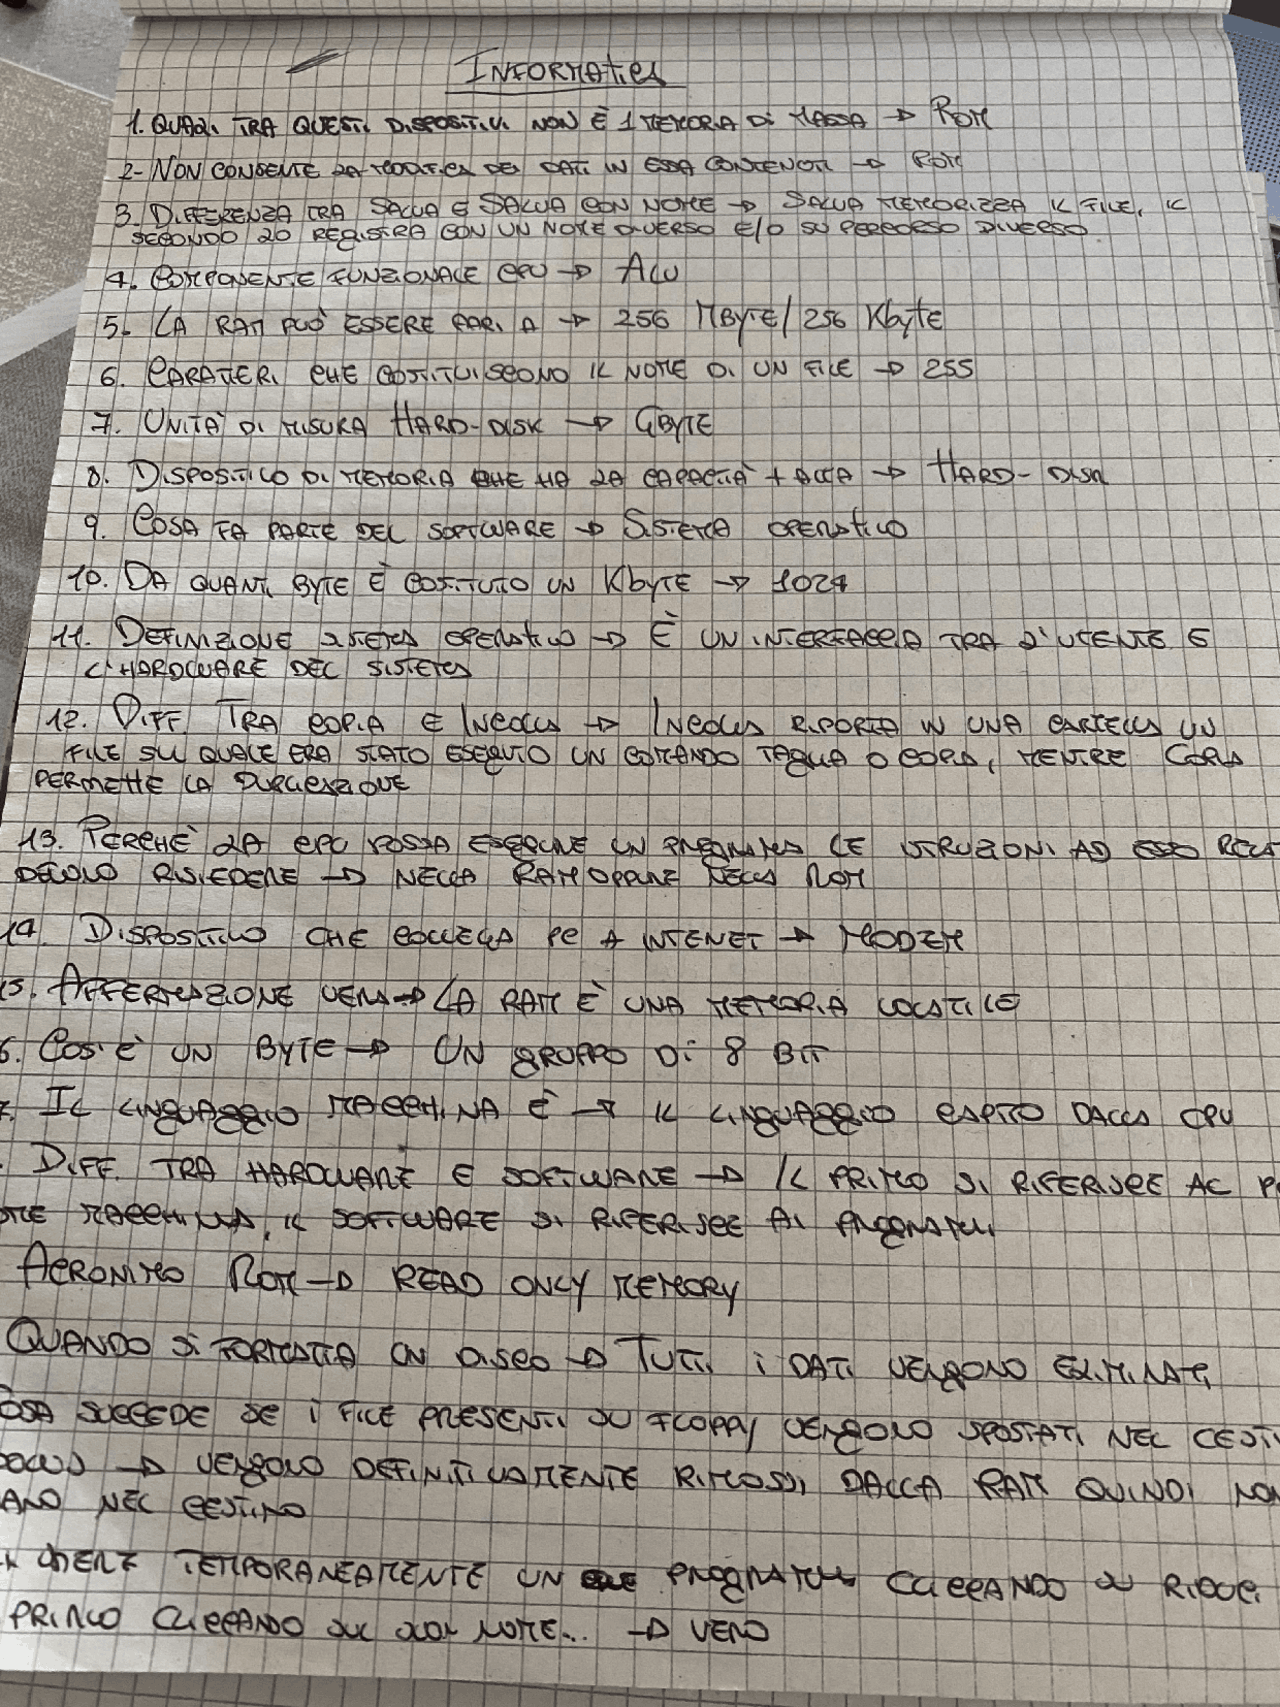 INFORMATICA
1. QUALI TRA QUESTI DISPOSITIVI NON È 1 MEMORIA DI MASSA → ROM
2- NON CONSENTE LA MODIFICA DEI DATI IN ESSA CONTENUTI → ROM
3. DIFFERENZA TRA SALVA E SALVA CON NOME → SALVA MEMORIZZA IL FILE, IL
SECONDO LO REGISTRA CON UN NOME DIVERSO E/O SU PERCORSO DIVERSO
4. COMPONENTE FUNZIONALE CPU → ALU
5. LA RAM PUÒ ESSERE PARI A → 256 MBYTE/256 Kbyte
6. CARATTERI CHE COSTITUISCONO IL NOME DI UN FILE → 255
7. UNITÀ DI MISURA HARD-DISK → GBYTE
8. DISPOSITICO DI MEMORIA CHE HA LA CAPACITÀ + ALTA → HARD-DISK
9. COSA FA PARTE DEL SOFTWARE → SISTEMA OPERATIVO
10. DA QUANTI BYTE È COSTITUTO UN KbyTE → 1024
11. DEFINIZIONE SISTEMA OPERATIVO → È UN INTERFACCIA TRA L'UTENTE E
L'HARDWARE DEL SISTEMA
12. DIFF. TRA COPIA E INCOLLA → INCOLLA RIPORTA IN UNA CARTELLA UN
FILE SUL QUALE ERA STATO ESEGUITO UN COMANDO TAGLIA O COPIA, MENTRE COPIA
PERMETTE LA DUPLICAZIONE
13. PERCHÈ LA CPU POSSA ESEGUIRE UN PROGRAMMA LE ISTRUZIONI AD ESSO
DEVONO RISIEDERE → NELLA RAM OPPURE NELLA ROM
14. DISPOSITIVO CHE COLLEGA PC A INTENET → MODEM
15. AFFERMAZIONE VERA → LA RAM È UNA MEMORIA VOLATILE
6. COS'È UN BYTE → UN GRUPPO DI 8 BIT
7. IL LINGUAGGIO MACCHINA È → IL LINGUAGGIO CAPITO DALLA CPU
. DIFF. TRA HARDWARE E SOFTWARE → IL PRIMO SI RIFERISCE AL
MACCHINA, IL SOFTWARE SI RIFERISCE AI PROGRAMMI
ACRONIMO ROM → READ ONLY MEMORY
QUANDO SI FORMATTA UN DISCO → TUTTI I DATI VENGONO ELIMINATI
OSA SUCCEDE SE I FILE PRESENTI SU FLOPPY VENGONO SPOSTATI NEL CESTI
→ VENGONO DEFINITIVAMENTE RIMOSSI DALLA RAM QUINDI NON
ANO NEL CESTINO
TEMPORANEAMENTE UN PROGRAMMA CLICCANDO SU RIDUCI
CLICCANDO SUL SUO NOME... → VERO